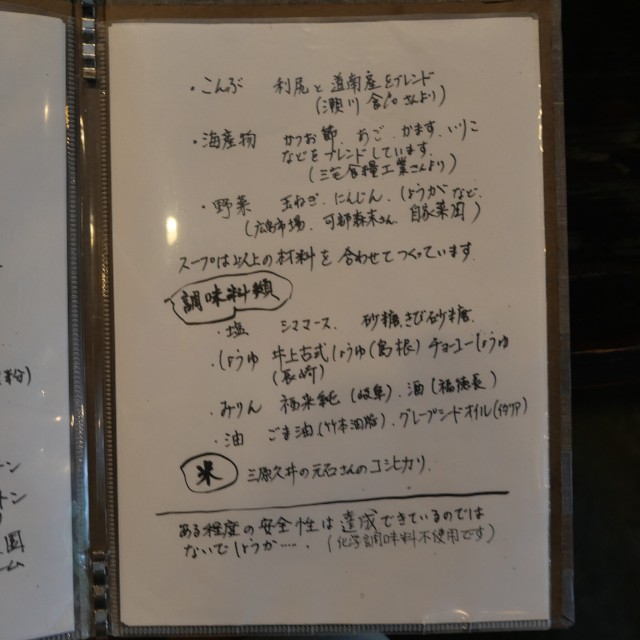 ・こんぶ 利尻と道南産をブレンド
(瀬川食品さんより)
・海産物 かつお節、あご、かます、いりこ
などをブレンドしています。
(三宅食糧工業さんより)
・野菜 玉ねぎ、にんじん、しょうがなど、
(広島市場、可部森末さん、自家菜園)
スープは以上の材料を合わせてつくっています。
調味料類
・塩 シママース、砂糖、きび砂糖
・しょうゆ 井上古式しょうゆ(島根) チョーコーしょうゆ
(長崎)
・みりん 福来純(岐阜)、酒(福徳長)
・油 ごま油(竹本油脂)、グレープシードオイル(イタリア)
米 三原久井の元石さんのコシヒカリ
ある程度の安全性は達成できているのでは
ないでしょうか……。(化学調味料不使用です)
粉)
ーン
トン
園
ーム